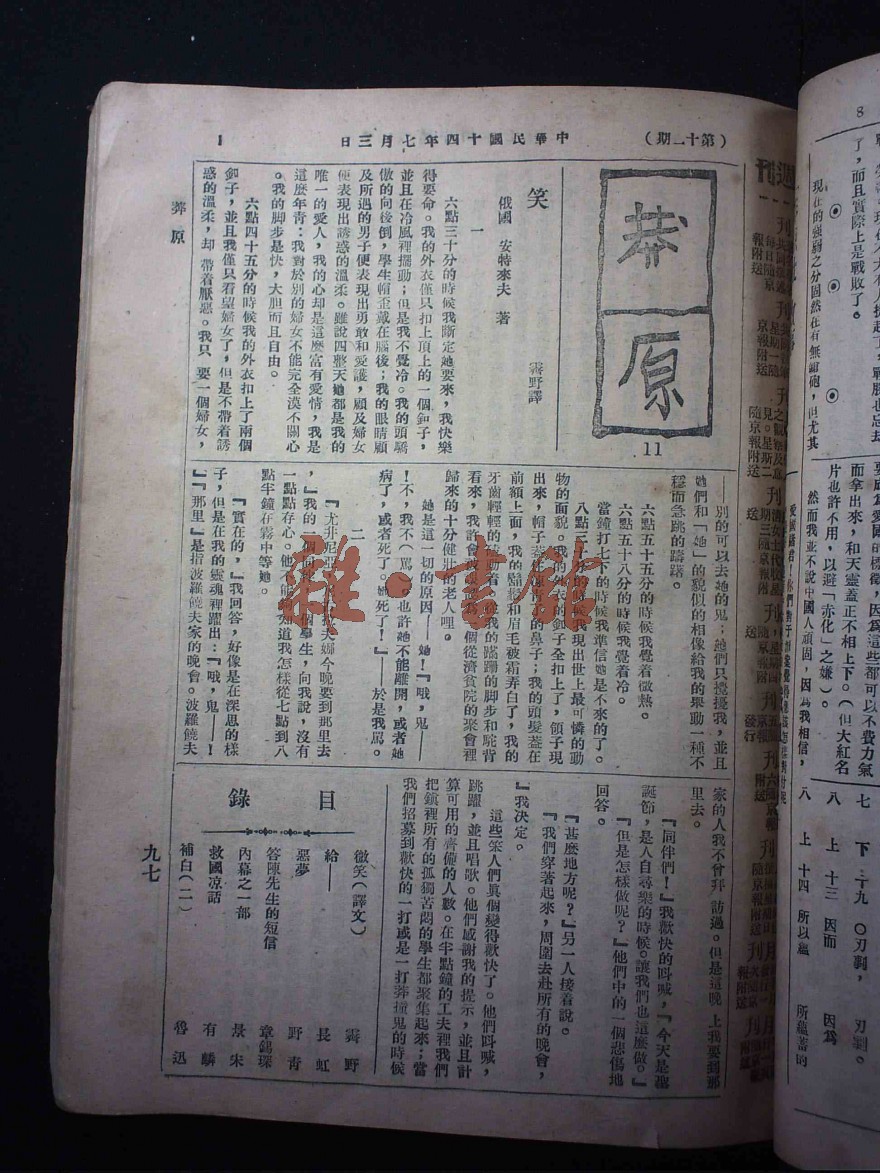 中華民國十四年七月三日
（第十二期）
1
莽原
11
笑
俄國　安特來夫　著
霽野譯
一
六點三十分的時候我斷定她要來，我快樂
得要命。我的外衣僅只扣上頂上的一個釦子，
並且在冷風裡擺動；但是我不覺冷。我的頭驕
傲的向後倒，學生帽歪戴在腦後；我的眼睛顧
及所遇的男子便表現出勇敢和愛護，顧及婦女
便表現出誘惑的溫柔。雖說四整天她都是我的
唯一的愛人，我的心却是這麼富有愛情，我是
這麼年青：我對於別的婦女不能完全漠不關心
。我的脚步是快，大胆而且自由。
六點四十五分的時候我的外衣扣上了兩個
釦子，並且我僅只看望婦女了，但是不帶着誘
惑的溫柔，却帶着厭惡。我只要一個婦女，
——別的可以去她的鬼；她們只攪擾我，並且
她們和『她』的貌似的相像給我的舉動一種不
穩而急跳的躊躇。
六點五十五分的時候我覺着微熱。
六點五十八分的時候我覺着冷。
當鐘打七下的時候我準信她是不來的了。
八點三十分的時候我現出世上最可憐的動
物的面貌。我的外衣的釦子全扣上了，領子現
出來，帽子蓋在凍青的鼻子；我的頭髮蓋在
前額上面，我的鬍鬚和眉毛被霜弄白了，我的
牙齒輕輕的
我的蹣跚的脚步和駝背
看來，我許會被
個從濟貧院的聚會裡
歸來的十分健壯的老人哩。
她是這一切的原因——她！『哦，鬼——
！不，我不（罵
也許她不能離開，或者她
病了，或者死了。她死了！』——於是我罵。
二
『尤井尼亞
夫娜今晚要到那里去
，』我的一個同
個學生，向我說，沒有
一點點存心。他不能夠知道我怎樣從七點到八
點半鐘在霧中等她。
『實在的，』我回答，好像是在深思的樣
子，但是在我的靈魂裡躍出：『哦，鬼——！
』『那里』是指波羅饒夫家的晚會。波羅饒夫
家的人我不曾拜訪過。但是這晚上我要到那
里去。
『同伴們！』我歡快的叫喊，『今天是聖
誕節，是人自尋樂的時候。讓我們也這麼做。』
『但是怎樣做呢？』他們中的一個悲傷地
回答。
『甚麽地方呢？』另一人接着說。
『我們穿著起來，周圍去赴所有的晚會，
』我决定。
這些笨人們眞個變得歡快了。他們叫喊，
跳躍，並且唱歌。他們感謝我的提示，並且計
算可用的齊備的人數。在半點鐘的工夫裡我們
把鎮裡所有的孤獨苦悶的學生都聚集起來；當
我們招募到歡快的一打或是一打莽撞鬼的時候
目錄
微笑（譯文）　霽野
給——　長虹
惡夢　野青
答陳先生的短信　章錫琛
內幕之一部　景宋
救國凉話　有麟
補白（二）　魯迅
莽原
九七
雜·書館
8
了，而且實際上是戰敗了。
現在的強弱之分固然在有無鎗砲，但尤其
而拿出來，和天靈蓋正不相上下。（但大紅名
片也許不用，以避「赤化」之嫌）。
然而我並不說中國人頑固，因爲我相信，